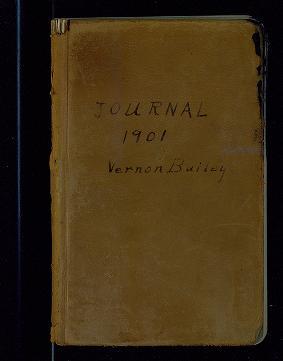 JOURNAL
1901
Vernon Bailey